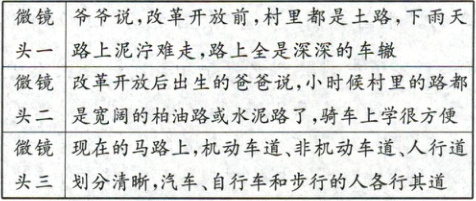 微镜 爷爷说,改革开放前,村里都是土路,下雨天
头一 路上泥泞难走,路上全是深深的车辙
微镜 改革开放后出生的爸爸说,小时候村里的路都
头二 是宽阔的柏油路或水泥路了,骑车上学很方便
微镜 现在的马路上,机动车道、非机动车道、人行道
头三 划分清晰,汽车、自行车和步行的人各行其道